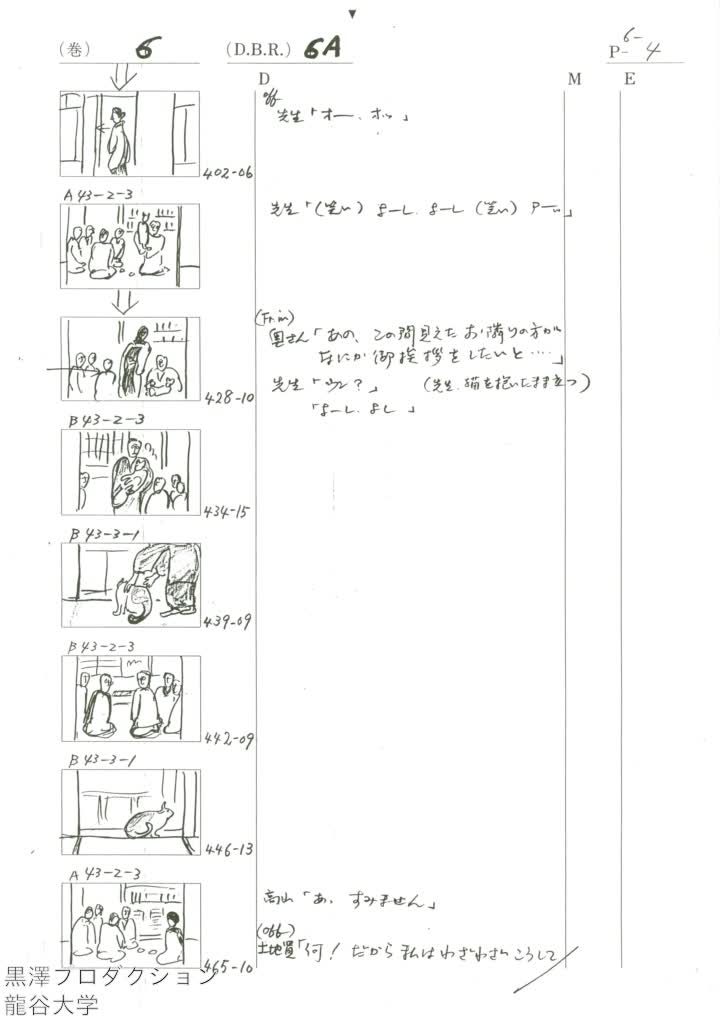 (巻) 6 (D.B.R.) 6A P-6-4
D M E
off
先生「オー、ホッ」
402-06
A 43-2-3
先生「(笑い) よーし、よーし (笑い) アーッ」
(Fr.in)
奥さん「あの、この間見えたお隣りの方が
なにか御挨拶をしたいと‥‥」
428-10
先生「ウン?」 (先生、猫を抱いたまま立つ)
「よーし、よし」
B 43-2-3
434-15
B 43-3-1
439-09
B 43-2-3
442-09
B 43-3-1
446-13
A 43-2-3
高山「あ、すみません」
(off)
土地買「何! だから私はわざわざこうして
465-10
黒澤プロダクション
龍谷大学